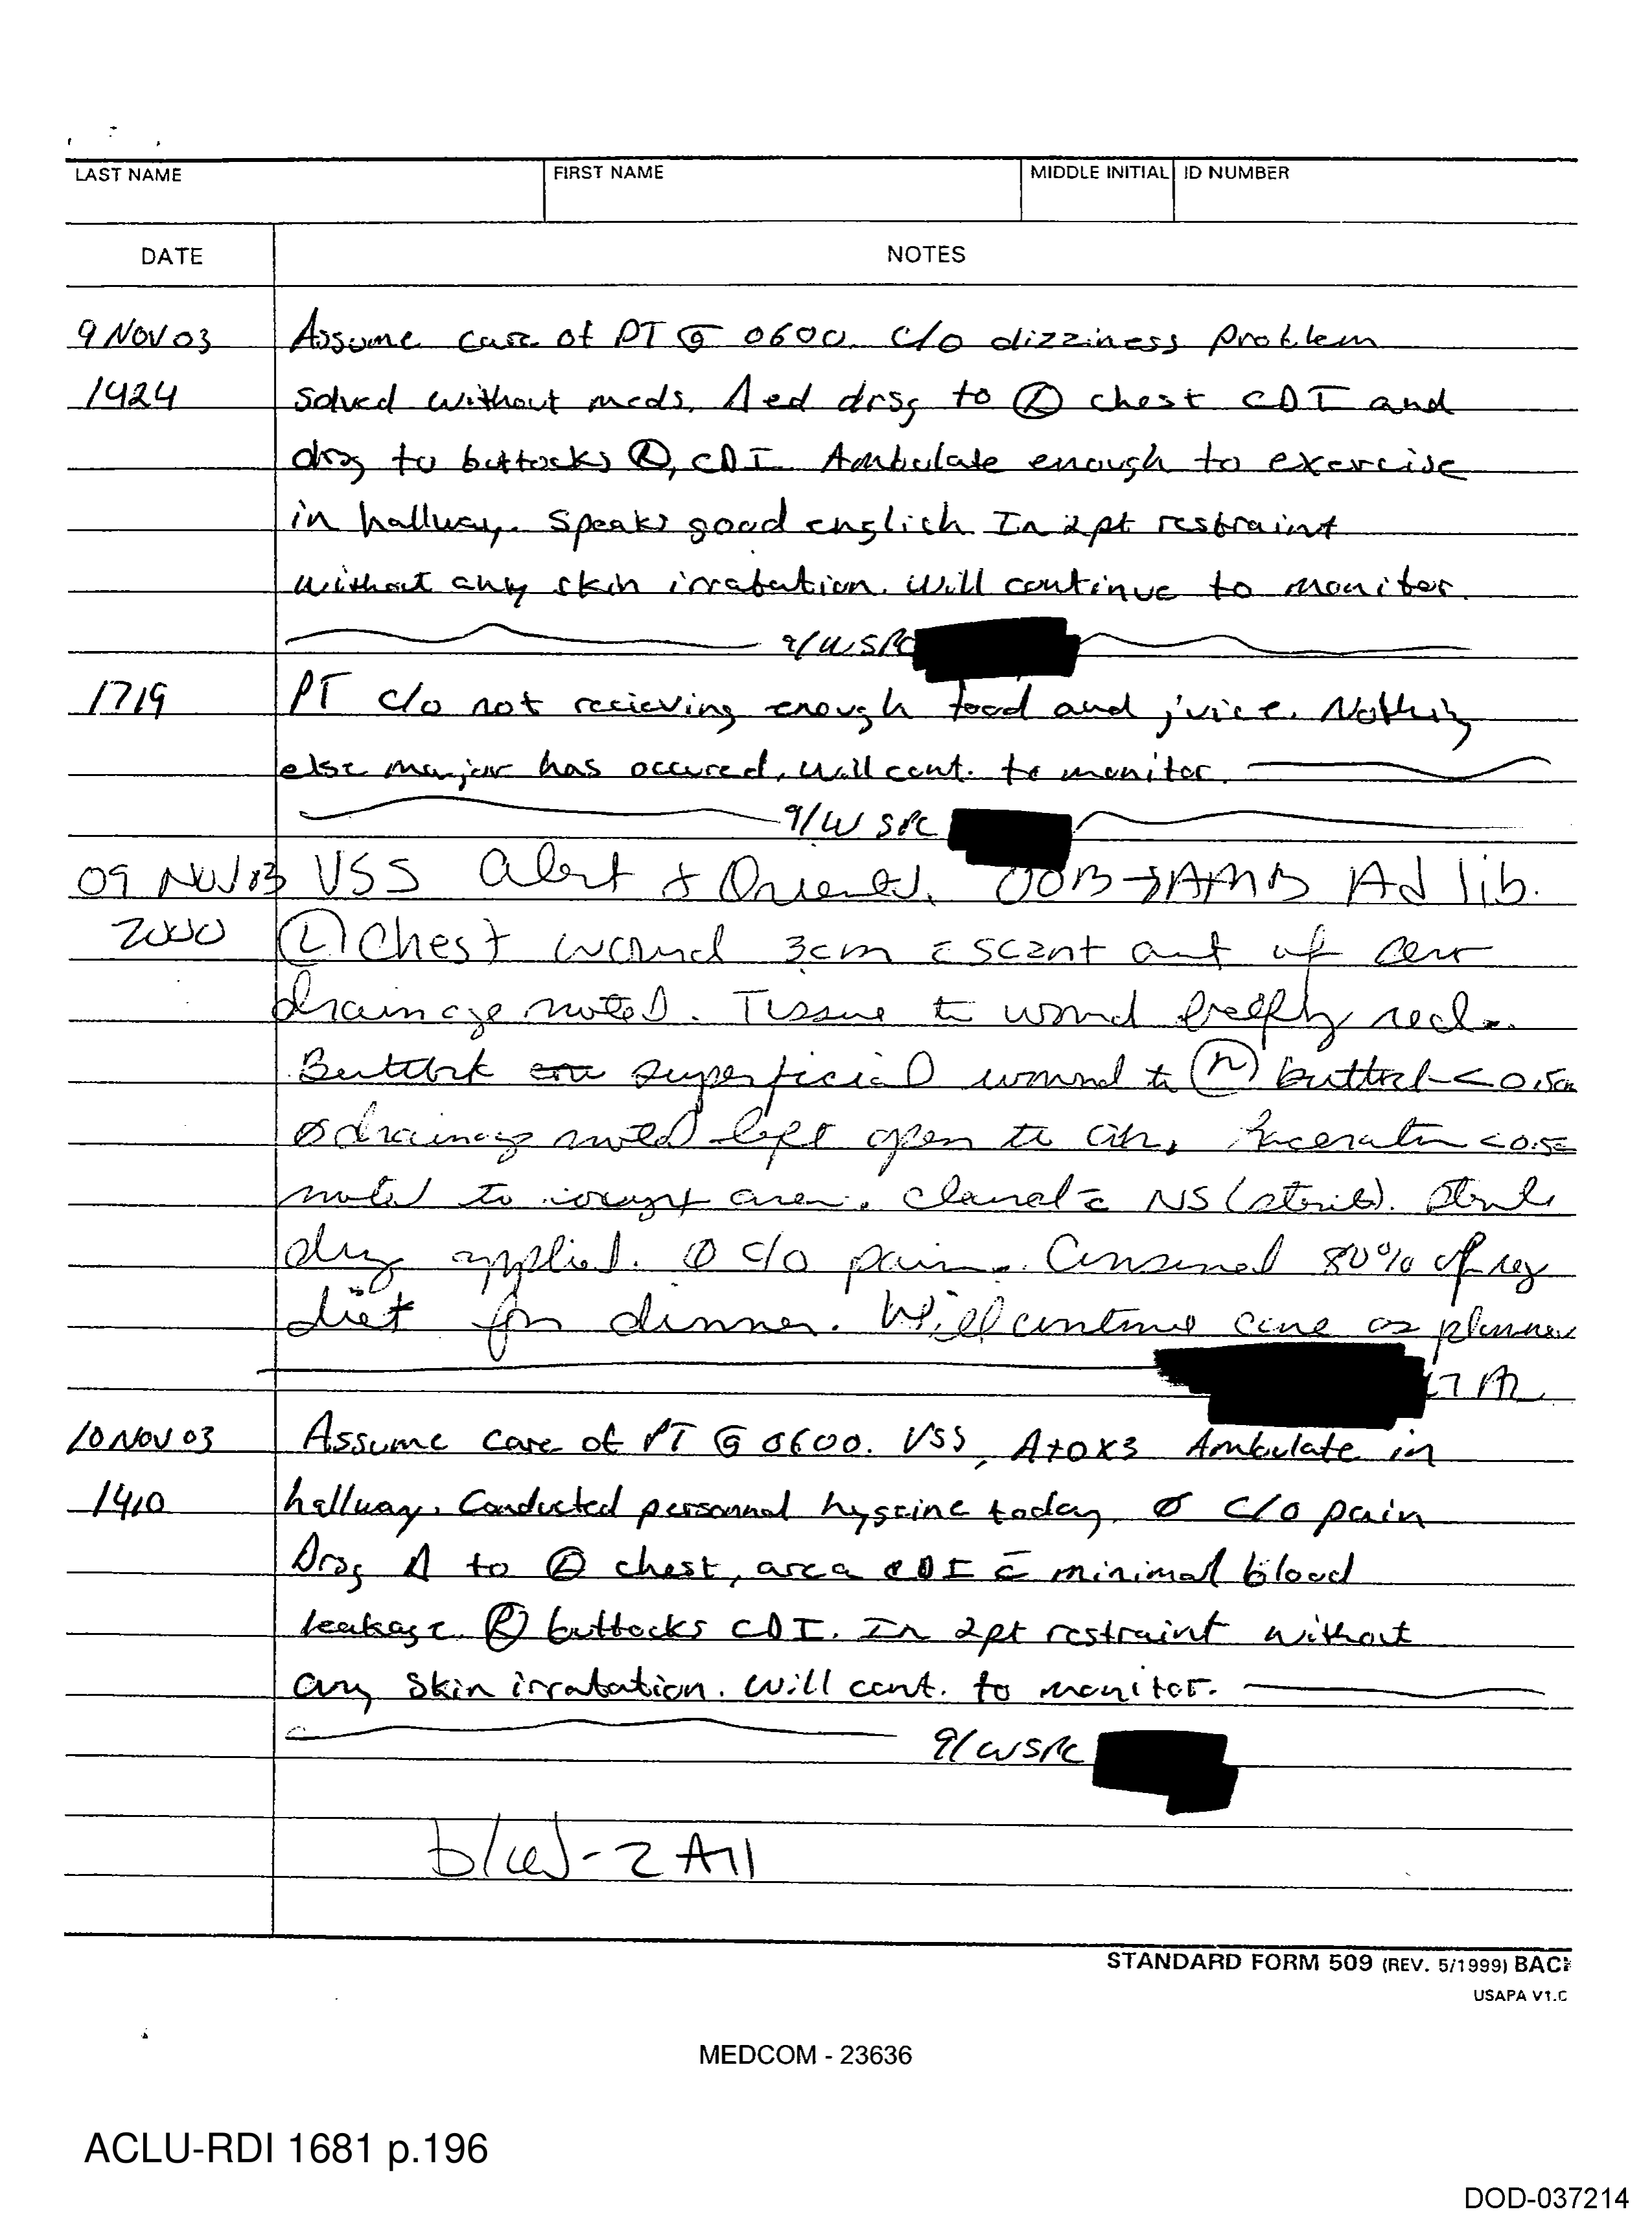 LAST NAME FIRST NAME MIDDLE INITIAL ID NUMBER
DATE NOTES
9 NOV 03 Assume care of PT @ 0600. C/O dizziness problem
1424 solved without meds. Δed drsg to Ⓛ chest CDI and
drsg to buttocks Ⓡ, CDI. Ambulate enough to exercise
in hallway. Speaks good english In 2pt restraint
without any skin irratation. Will continue to monitor.
SPC
1719 PT c/o not recieving enough food and juice. Nothing
else major has occured, will cont. to monitor.
9/W SPC
09 NOV 03 VSS Alert + Oriented. OOB→AMB Ad lib.
2000 Ⓛ Chest wound 3cm c̄ scant amt of
drainage noted. Tissue to wound beefy red.
Buttock superficial wound to Ⓡ buttock < 0.5cm
Ø drainage noted left open to air. Laceration < 0.5c
noted to area. c̄ NS (sterile). Sterile
drsg applied. Ø c/o pain. Consumed 80% of reg
diet for dinner. Will continue care as planned
10 NOV 03 Assume care of PT @ 0600. VSS, A+OX3 Ambulate in
1410 hallway. Conducted personnal hygeine today. Ø C/O pain
Drsg Δ to Ⓛ chest, area CDI c̄ minimal blood
leakage. Ⓡ buttocks CDI. In 2pt restraint without
any skin irratation. Will cont. to monitor.
9/W SPC
b(6)-2 All
STANDARD FORM 509 (REV. 5/1999) BACK
USAPA V1.0
MEDCOM - 23636
ACLU-RDI 1681 p.196
DOD-037214